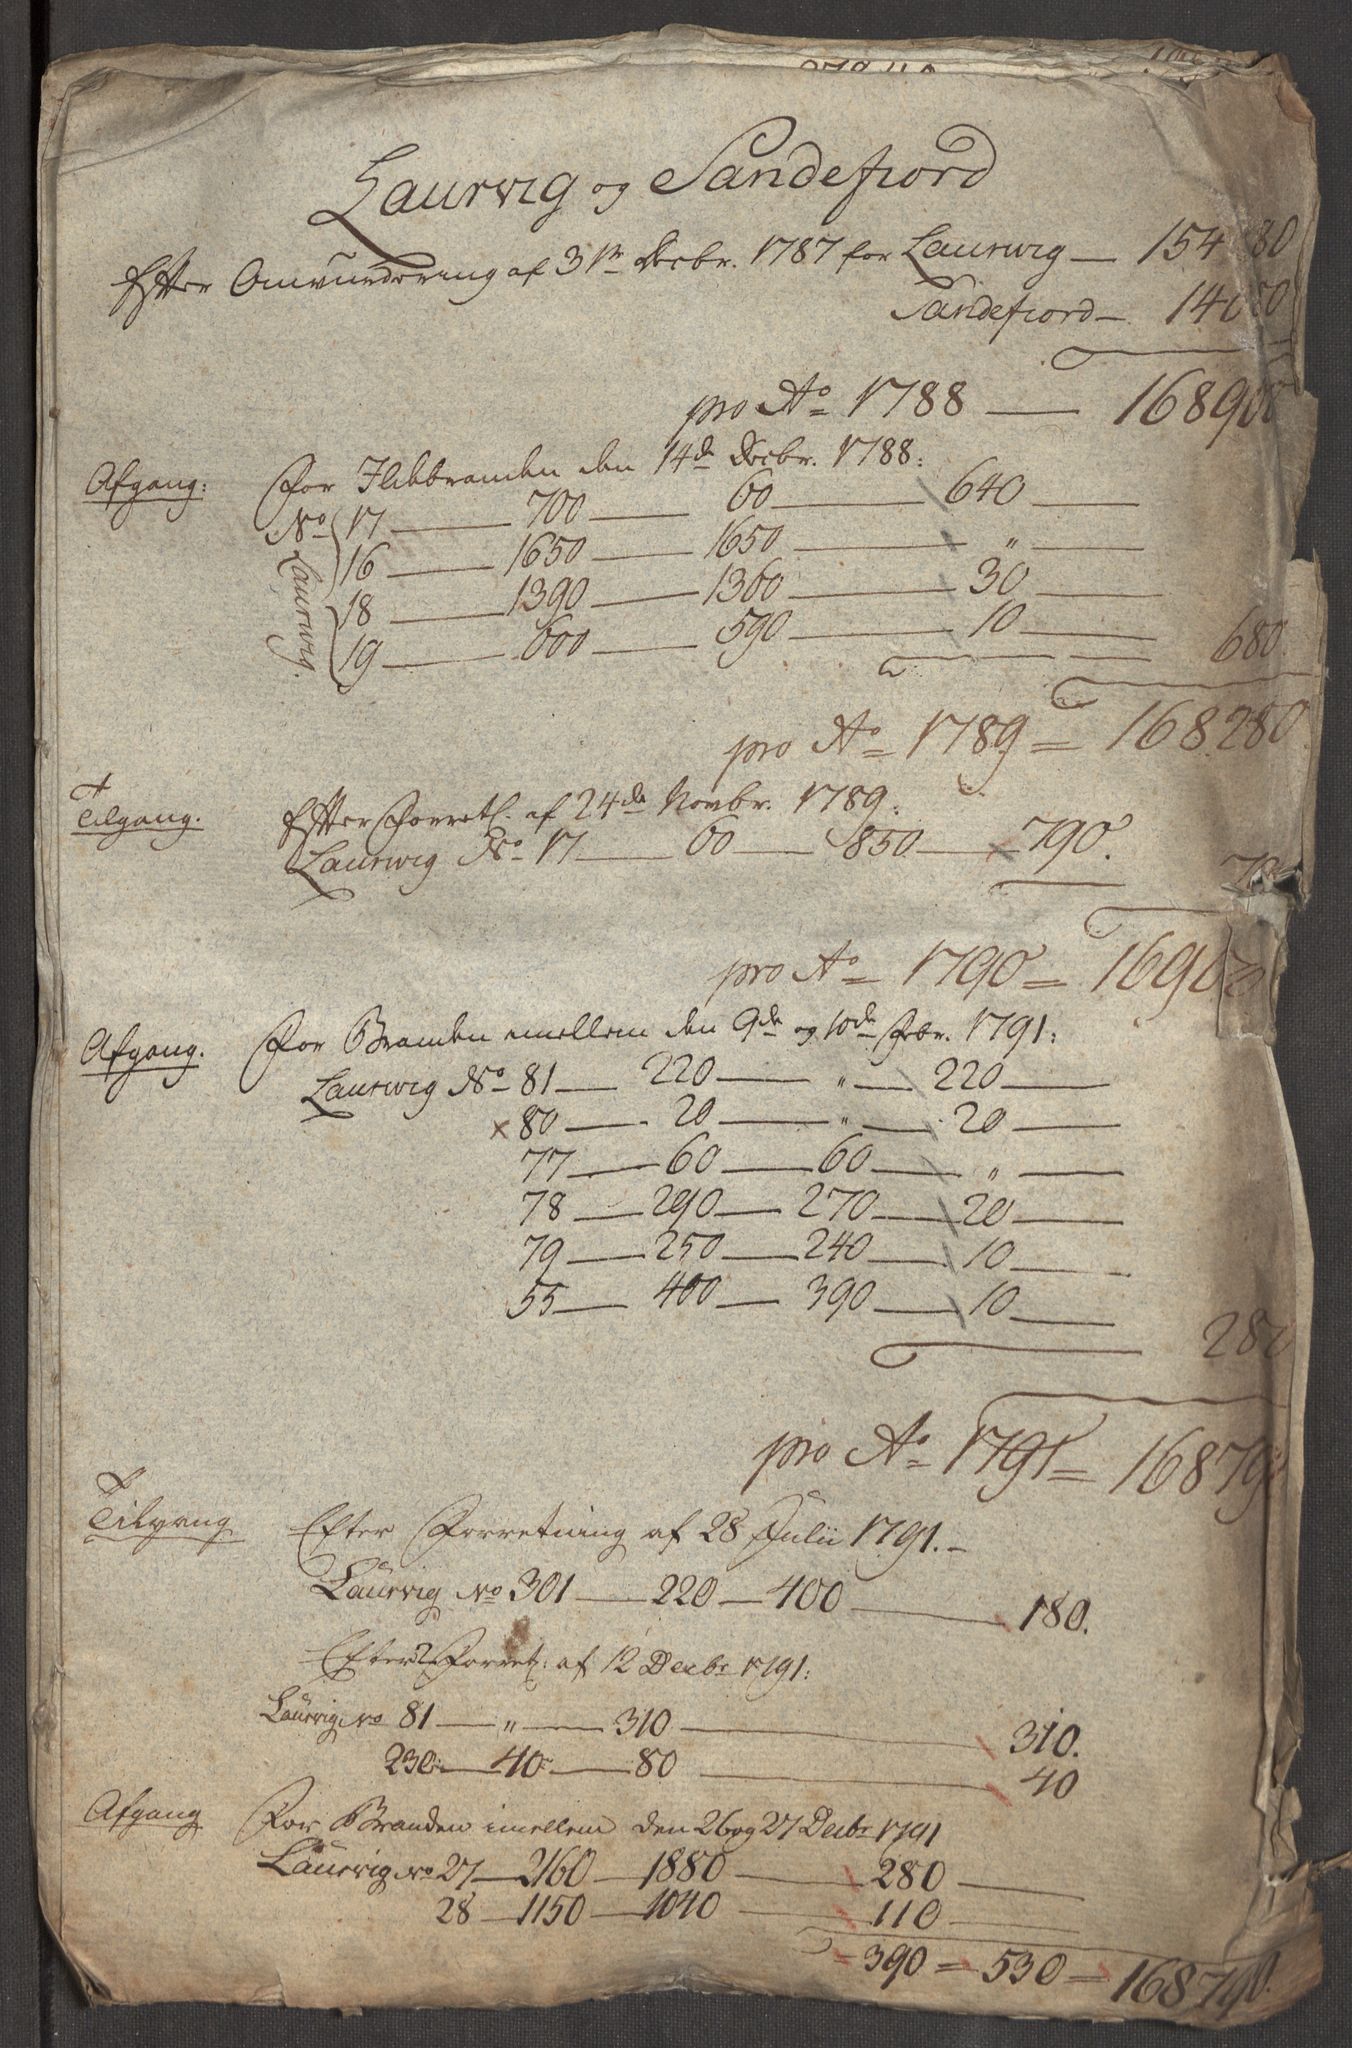 Laurvig og Sandefiord
Efter Omvurdering af 31te Decbr. 1787 for Laurwig — 154 80
Sandefiord — 14
pro Ao 1788 — 168900
Afgang: For Ildebranden den 14de Decbr. 1788:
No 17 — 700 — 60 — 640 —
16 — 1650 — 1650 — " —
Laurwig. 18 — 1390 — 1360 — 30 —
19 — 600 — 590 — 10 — 680
pro Ao 1789 = 168280
Tilgang. Efter Forretn. af 24de Novbr. 1789:
Laurwig No 17 — 60 — 850 — 790.
pro Ao 1790 = 1690
Afgang. For Branden imellem den 9de og 10de Febr. 1791:
Laurwig No 81 — 220 — " — 220 —
× 80 — 20 — " — 20 —
77 — 60 — 60 — " —
78 — 290 — 270 — 20 —
79 — 250 — 240 — 10 —
55 — 400 — 390 — 10 —
280
pro Ao 1791 = 16879
Tilgang Efter Forretning af 28 Julii 1791. —
Laurvig No 301 — 220 — 400 — 180.
Efter Forretn: af 12 Decbr 1791:
Laurvig No 81 — " — 310 — 310.
230: — 40 — 80 — 40
Afgang For Branden imellem den 26 og 27 Decbr 1791
Laurvig No 27 — 2160 — 1880 — 280 —
28 — 1150 — 1040 — 110 —
= 390 = 530 = 168790.